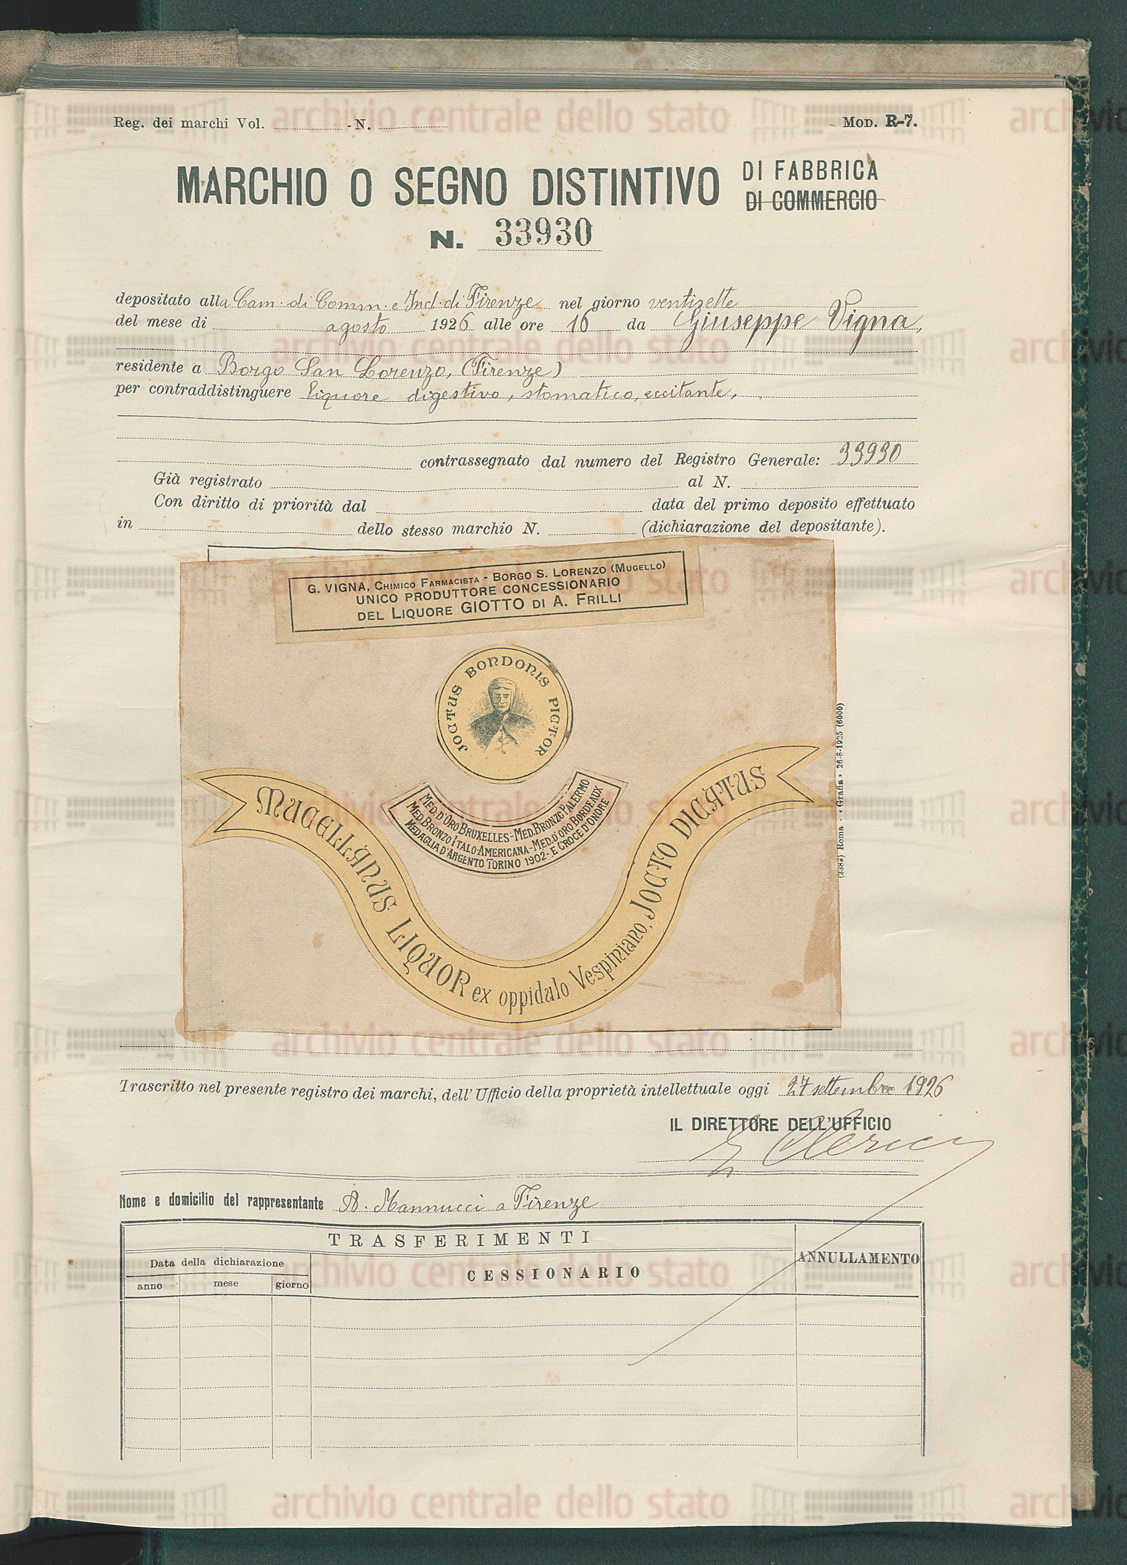 Reg. dei marchi Vol. - N. MOD. R-7.
MARCHIO O SEGNO DISTINTIVO DI FABBRICA
DI COMMERCIO
N. 33930
depositato alla Cam. di Comm. e Ind. di Firenze nel giorno ventisette
del mese di agosto 1926 alle ore 16 da Giuseppe Vigna,
residente a Borgo San Lorenzo, (Firenze)
per contraddistinguere liquore digestivo, stomatico, eccitante,
contrassegnato dal numero del Registro Generale: 33930
Già registrato al N.
Con diritto di priorità dal data del primo deposito effettuato
in dello stesso marchio N. (dichiarazione del depositante).
G. VIGNA, CHIMICO FARMACISTA - BORGO S. LORENZO (MUGELLO)
UNICO PRODUTTORE CONCESSIONARIO
DEL LIQUORE GIOTTO DI A. FRILLI
JOCTUS BONDONIS PICTOR
MED. D'ORO BRUXELLES - MED. BRONZO PALERMO
MED. BRONZO ITALO-AMERICANA - MED. D'ORO BORDEAUX
MEDAGLIA D'ARGENTO TORINO 1902 - E CROCE D'ONORE
MUCELLANUS LIQUOR ex oppidulo Vespiniano, JOCTO DICATUS
(3384) Roma - «Grafia» 26-8-1925 (6000)
Trascritto nel presente registro dei marchi, dell'Ufficio della proprietà intellettuale oggi 27 settembre 1926
IL DIRETTORE DELL'UFFICIO
Nome e domicilio del rappresentante A. Mannucci a Firenze
TRASFERIMENTI
Data della dichiarazione CESSIONARIO ANNULLAMENTO
anno mese giorno
archivio centrale dello stato